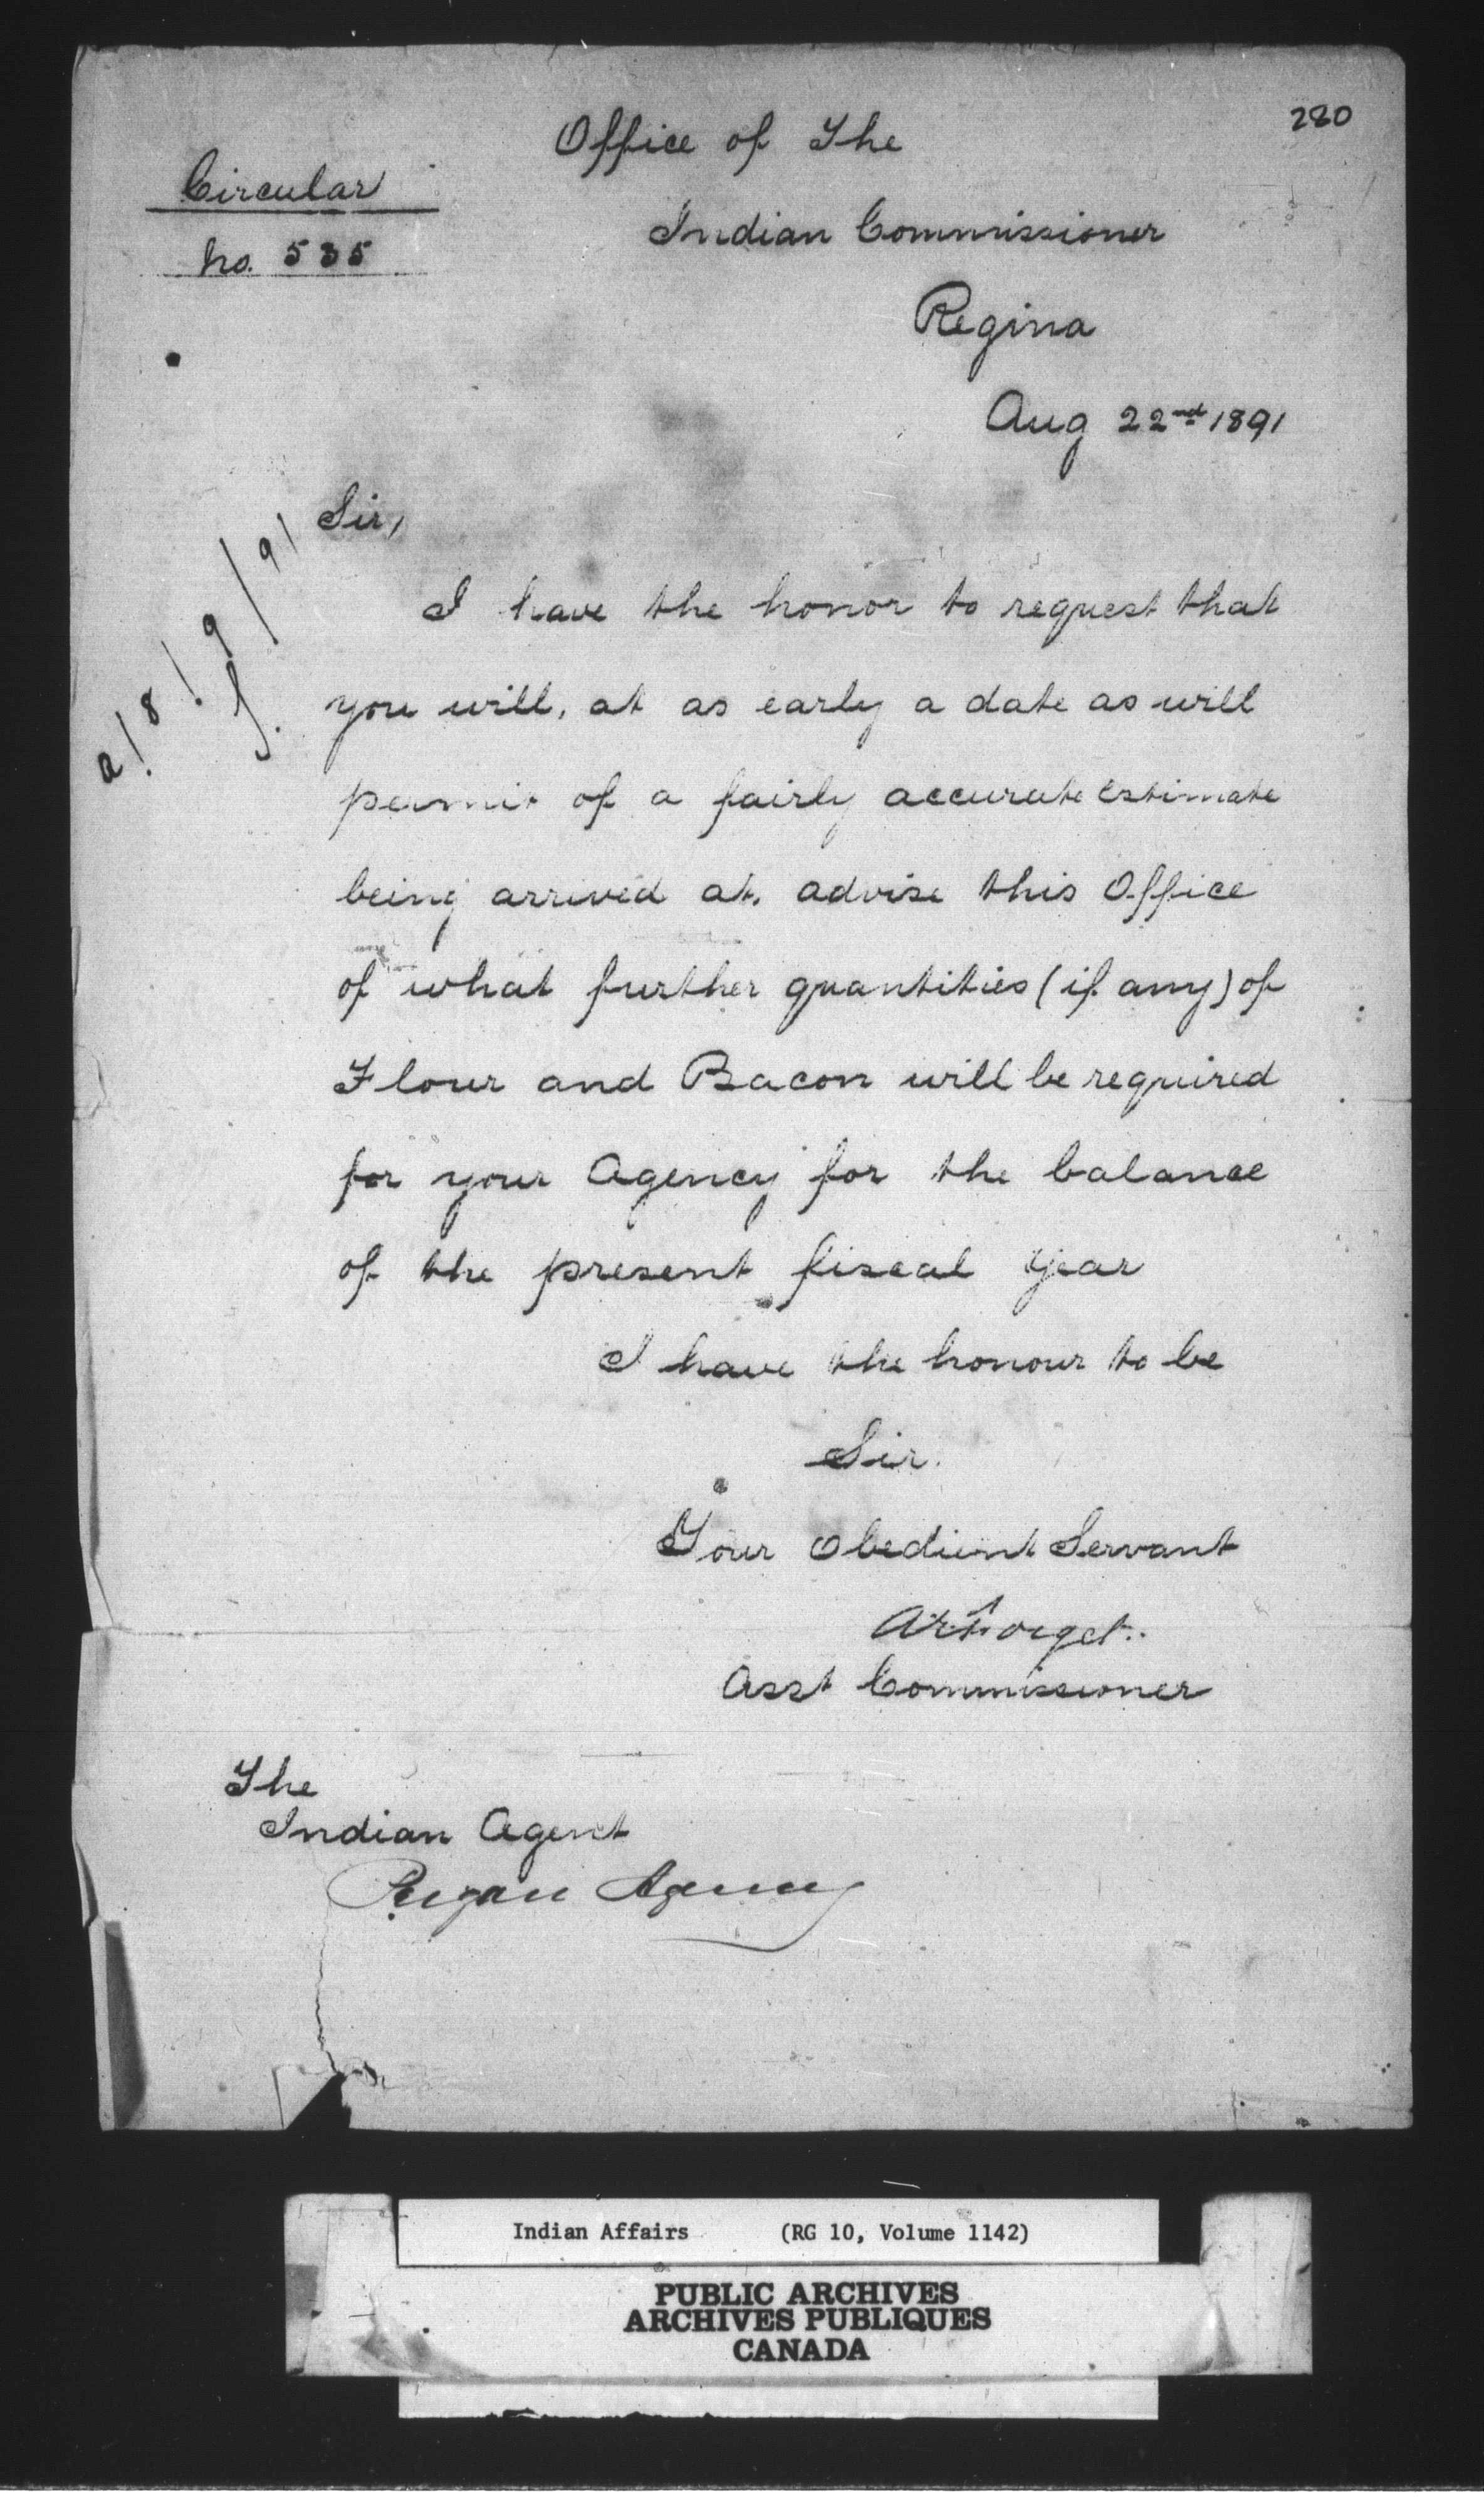 280
Office of The
Circular
No. 535
Indian Commissioner
Regina
Aug 22nd 1891
a/8/9/91
Sir,
I have the honor to request that
you will, at as early a date as will
permit of a fairly accurate Estimate
being arrived at, advise this Office
of what further quantities (if any) of
Flour and Bacon will be required
for your Agency for the balance
of the present fiscal year
I have the honour to be
Sir.
Your Obedient Servant
AE Forget.
Asst Commissioner
The
Indian Agent
Peigan Agency
Indian Affairs (RG 10, Volume 1142)
PUBLIC ARCHIVES
ARCHIVES PUBLIQUES
CANADA